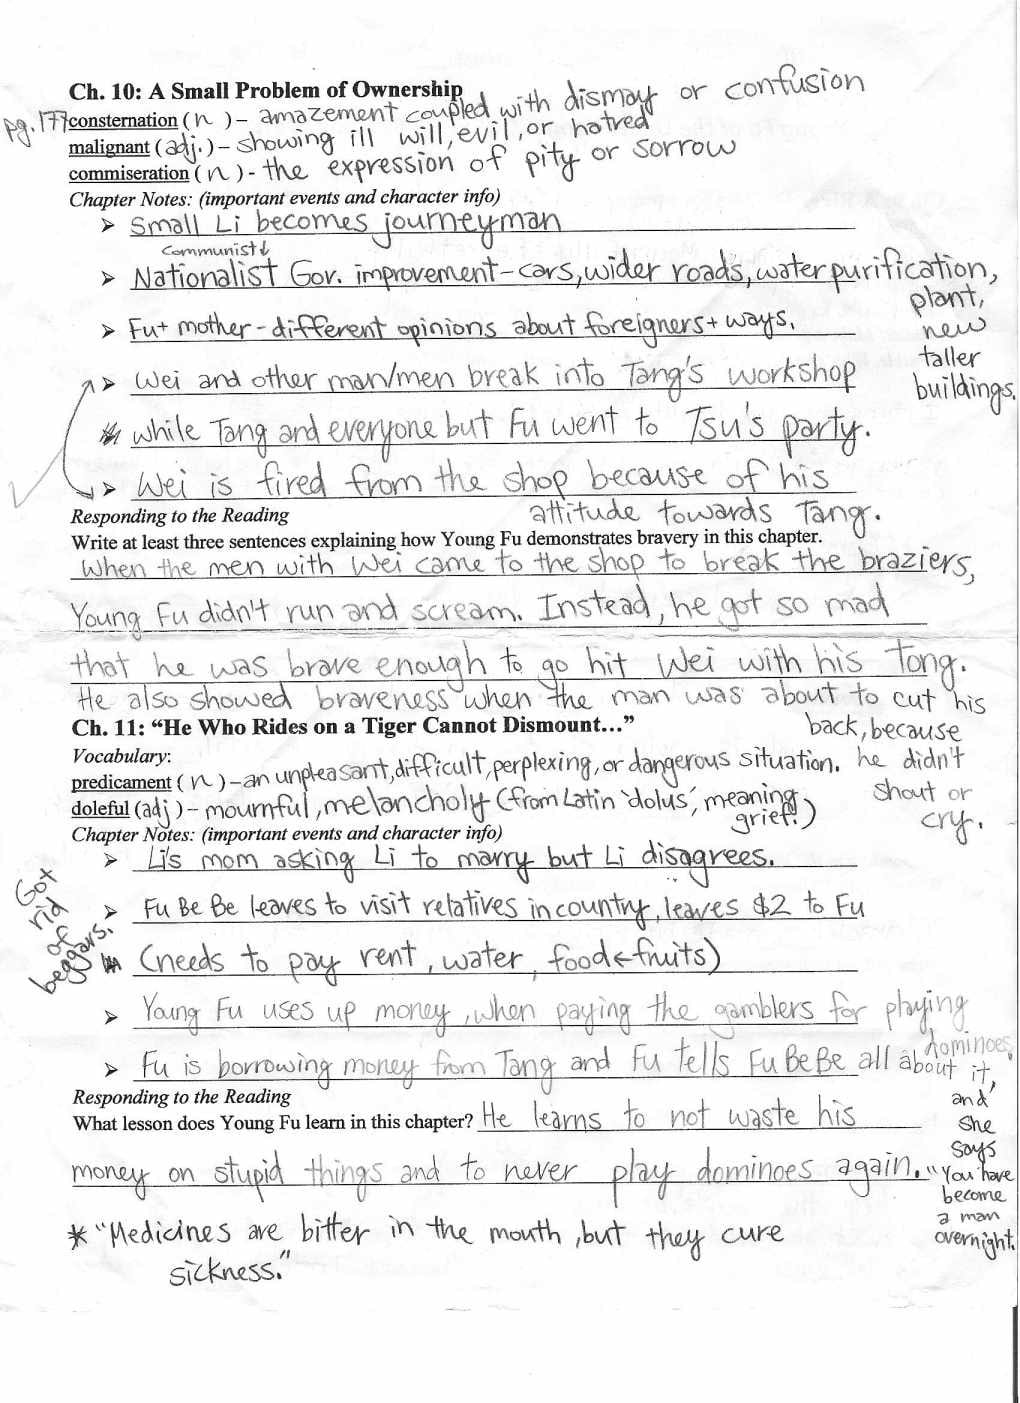 Ch. 10: A Small Problem of Ownership
pg. 177 consternation (n) – amazement coupled with dismay or confusion
malignant (adj.) – showing ill will, evil, or hatred
commiseration (n) - the expression of pity or sorrow
Chapter Notes: (important events and character info)
➢ Small Li becomes journeyman
Communist↓
➢ Nationalist Gov. improvement – cars, wider roads, water purification,
plant,
new
taller
buildings.
➢ Fu + mother – different opinions about foreigners + ways.
➢ Wei and other man/men break into Tang's workshop
while Tang and everyone but Fu went to Tsu's party.
➢ Wei is fired from the shop because of his
attitude towards Tang.
Responding to the Reading
Write at least three sentences explaining how Young Fu demonstrates bravery in this chapter.
When the men with Wei came to the shop to break the braziers,
Young Fu didn't run and scream. Instead, he got so mad
that he was brave enough to go hit Wei with his tong.
He also showed braveness when the man was about to cut his
back, because
he didn't
shout or
cry.
Ch. 11: “He Who Rides on a Tiger Cannot Dismount…”
Vocabulary:
predicament (n) – an unpleasant, difficult, perplexing, or dangerous situation.
doleful (adj) – mournful, melancholy (from Latin 'dolus', meaning
grief.)
Chapter Notes: (important events and character info)
➢ Li's mom asking Li to marry but Li disagrees.
Got
rid
of
beggars.
➢ Fu Be Be leaves to visit relatives in country, leaves $2 to Fu
(needs to pay rent, water, food ← fruits)
➢ Young Fu uses up money, when paying the gamblers for playing
dominoes.
➢ Fu is borrowing money from Tang and Fu tells Fu Be Be all about it,
and
she
says
"You have
become
a man
overnight.
Responding to the Reading
What lesson does Young Fu learn in this chapter? He learns to not waste his
money on stupid things and to never play dominoes again.
* "Medicines are bitter in the mouth, but they cure
sickness."